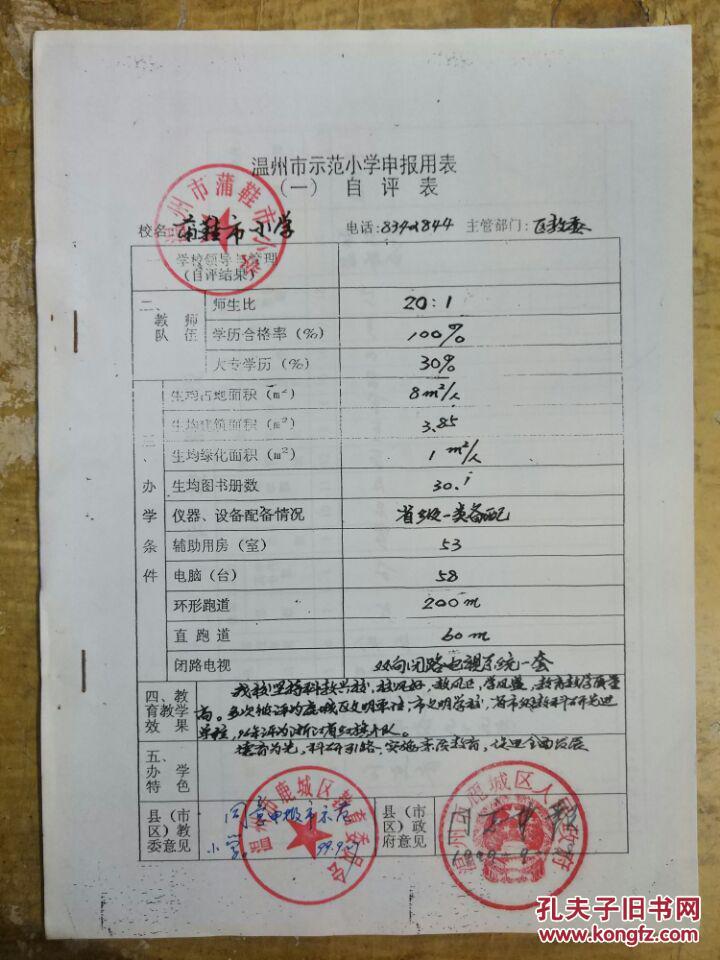 温州市示范小学申报用表
（一） 自 评 表
温州市蒲鞋市小学
校名：蒲鞋市小学 电话：834844 主管部门：区教委
一、学校领导与管理
（自评结果）
二、教师队伍
师生比 20：1
学历合格率（%） 100%
大专学历（%） 30%
三、办学条件
生均占地面积（m²） 8m²/人
生均建筑面积（m²） 3.85
生均绿化面积（m²） 1m²/人
生均图书册数 30.1
仪器、设备配备情况 省级一类备配
辅助用房（室） 53
电脑（台） 58
环形跑道 200m
直 跑 道 60m
闭路电视 双向闭路电视系统一套
四、教育教学效果
我校坚持科教兴校，校风好，教风正，学风盛，教育教学质量
高。多次被评为鹿城区文明单位，市文明学校，省市级教科研先进
单位，96年评为浙江省红旗大队。
五、办学特色
德育为先，科研引路，实施素质教育，促进全面发展
县（市区）教委意见
同意申报市示范
小学 99.9.
温州市鹿城区教育委员会
县（市区）政府意见
同意申报
1999.9.
温州市鹿城区人民政府
孔夫子旧书网
www.kongfz.com